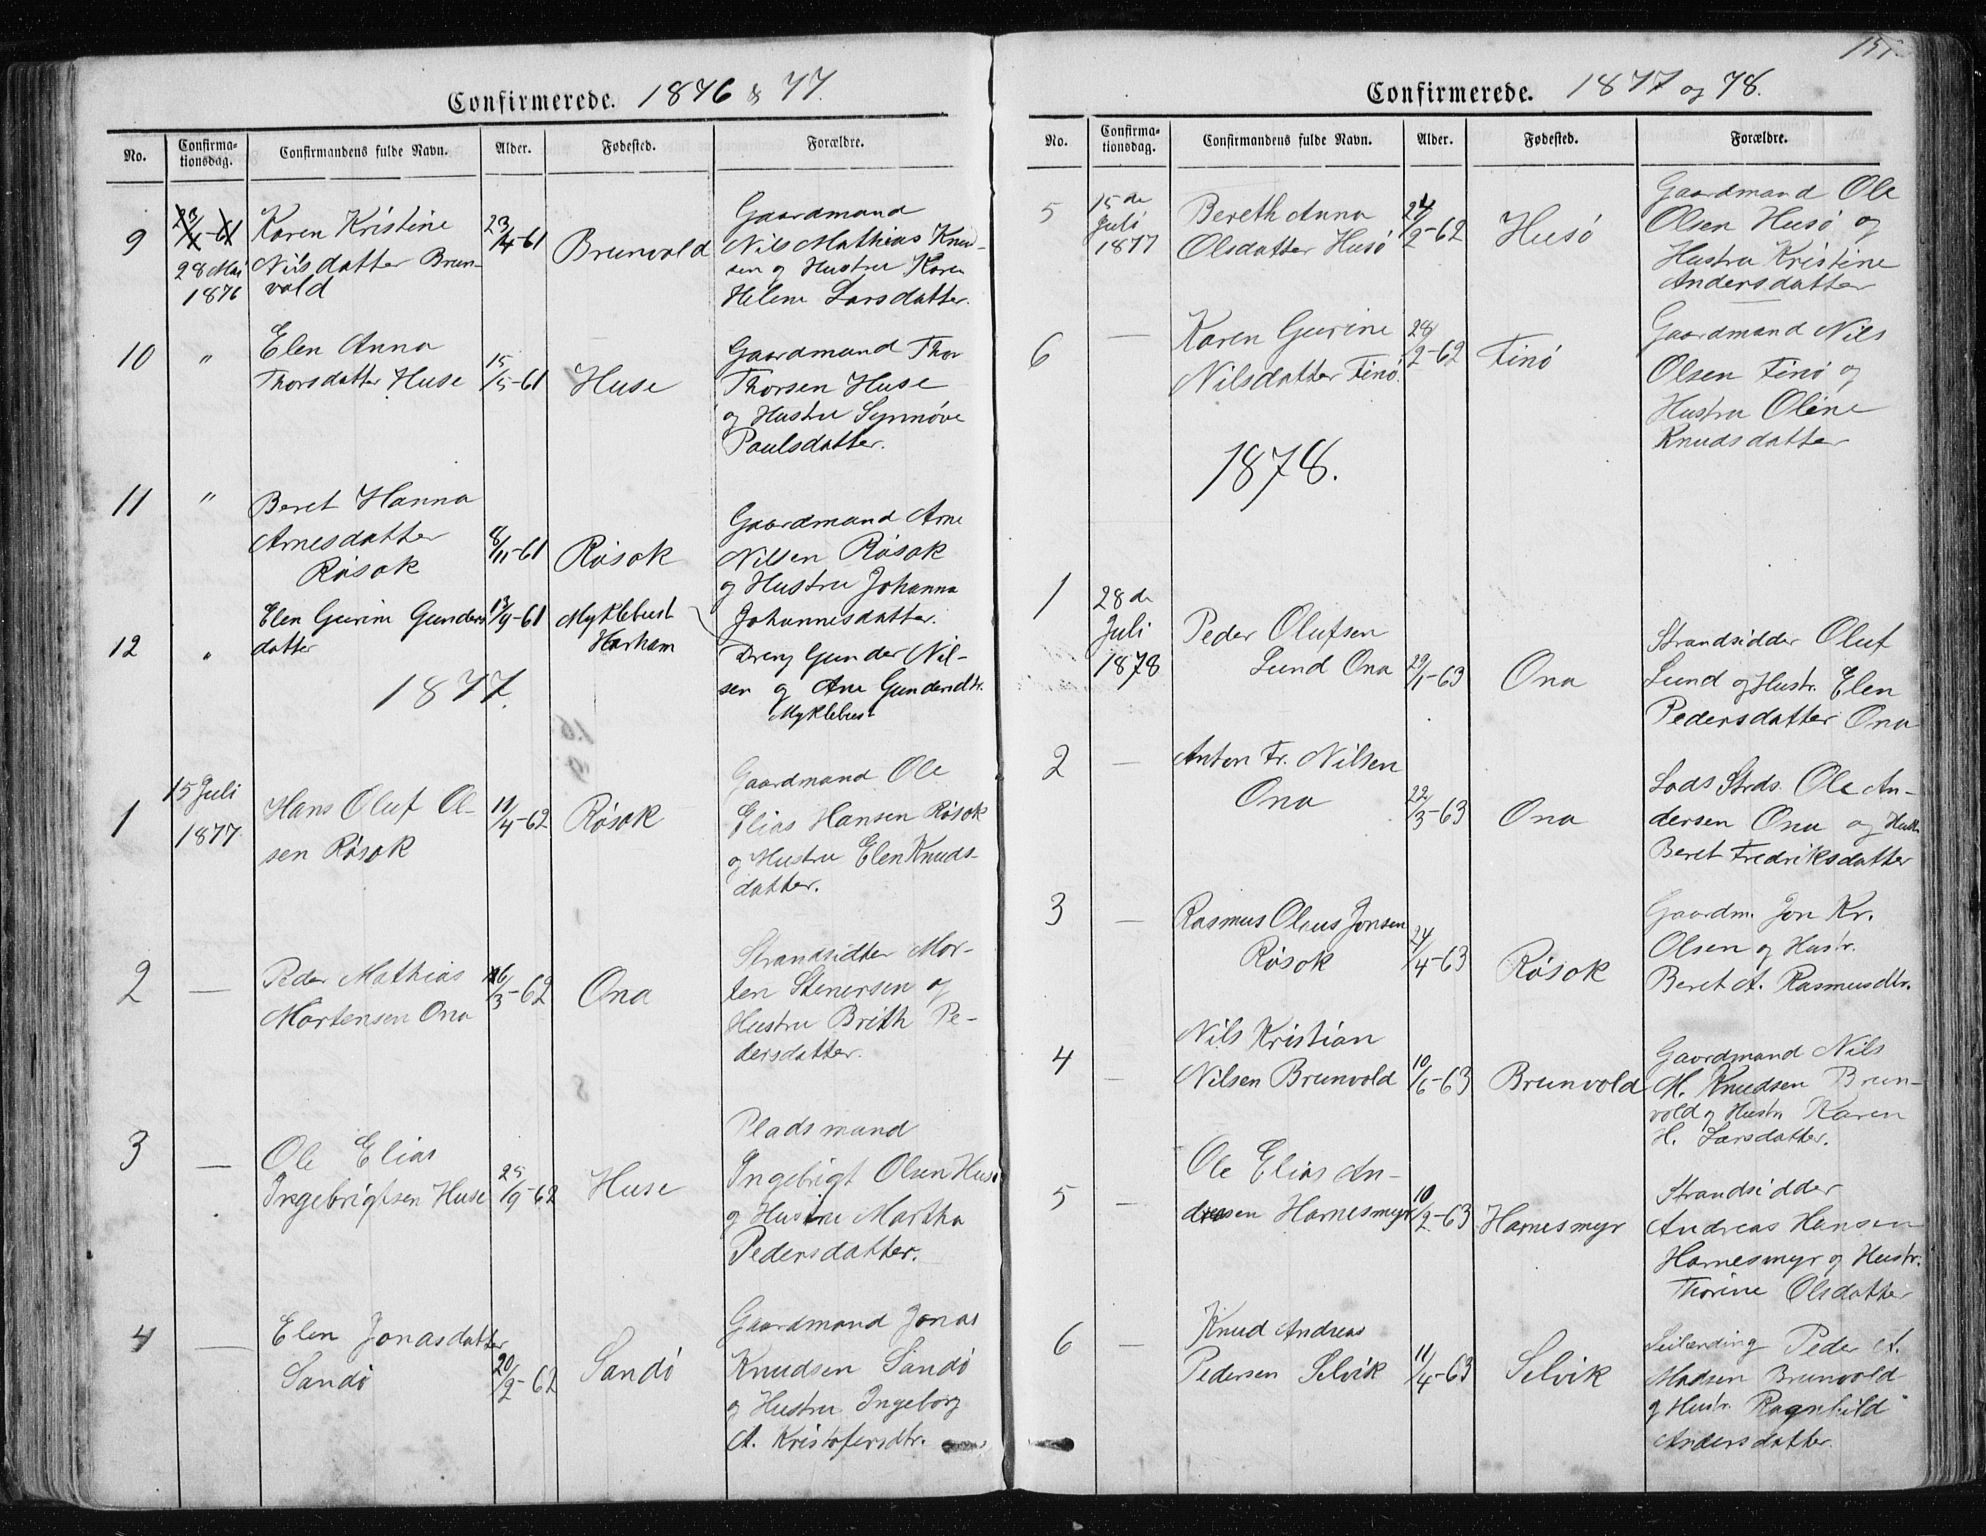 Confirmerede. 1876 & 77.
No. Confirma-tionsdag. Confirmandens fulde Navn. Alder. Fødested. Forældre.
9 23/4-61 Karen Kristine 23/4-61 Brunvold Gaardmand
28 Mai Nilsdatter Brun- Nils Mathias Knud-
1876 vold sen og Hustru Karen
Helene Larsdatter.
10 " Elen Anna 15/5-61 Huse Gaardmand Thor
Thorsdatter Huse Thorsen Huse
og Hustru Synnøve
Paulsdatter.
11 " Beret Hanna Gaardmand Arne
Arnesdatter 8/11-61 Røsok Nilsen Røsok
Røsok og Hustru Johanna
Johannesdatter.
12 " Elen Gurine Gunders 13/9-61 Myklebust
datter Harham Dreng Gunder Nil-
sen og Ane Gundersdtr.
Myklebust
1877.
1 15 Juli Hans Oluf Ol- 11/4-62 Røsok Gaardmand Ole
1877 sen Røsok Elias Hansen Røsok
og Hustru Elen Knuds-
datter.
2 — Peder Mathias 16/3-62 Ona Strandsidder Mor-
Mortensen Ona ten Stenersen og
Hustru Brith Pe-
dersdatter.
3 — Ole Elias 25/9-62 Huse Pladsmand
Ingebrigtsen Huse Ingebrigt Olsen Huse
og Hustru Martha
Pedersdatter.
4 — Elen Jonasdatter 20/2-62 Sandø Gaardmand Jonas
Sandø Knudsen Sandø
og Hustru Ingeborg
A. Kristofersdtr.
151
Confirmerede. 1877 og 78.
No. Confirma-tionsdag. Confirmandens fulde Navn. Alder. Fødested. Forældre.
5 15de Bereth Anna 24/2-62 Husø Gaardmand Ole
Juli Olsdatter Husø Olsen Husø og
1877 Hustru Kristine
Andersdatter
6 — Karen Gurine 28/2-62 Finø Gaardmand Nils
Nilsdatter Finø. Olsen Finø og
Hustru Oline
Knudsdatter
1878.
1 28de Peder Olufsen Strandsidder Oluf
Juli Lund Ona 29/1-63 Ona Lund og Hustr. Elen
1878 Pedersdatter Ona
2 — Anton Fr. Nilsen Lods Strds. Ole An-
Ona 22/3-63 Ona dersen Ona og Hustr.
Beret Fredriksdatter
3 — Rasmus Olaus Jonsen Gaardm. Jon Kr.
Røsok 24/4-63 Røsok Olsen og Hustr.
Beret A. Rasmusdtr.
4 — Nils Kristian Gaardmand Nils
Nilsen Brunvold 10/6-63 Brunvold M. Knudsen Brun-
vold og Hustr Karen
H. Larsdatter.
5 — Ole Elias An- Strandsidder
dreasen Harnesmyr 10/2-63 Harnesmyr Andreas Hansen
Harnesmyr og Hustr.
Thorine Olsdatter
6 — Knud Andreas Peder A.
Pedersen Selvik 11/4-63 Selvik Madsen Brunvold
og Hustr. Ragnhild
Andersdatter.